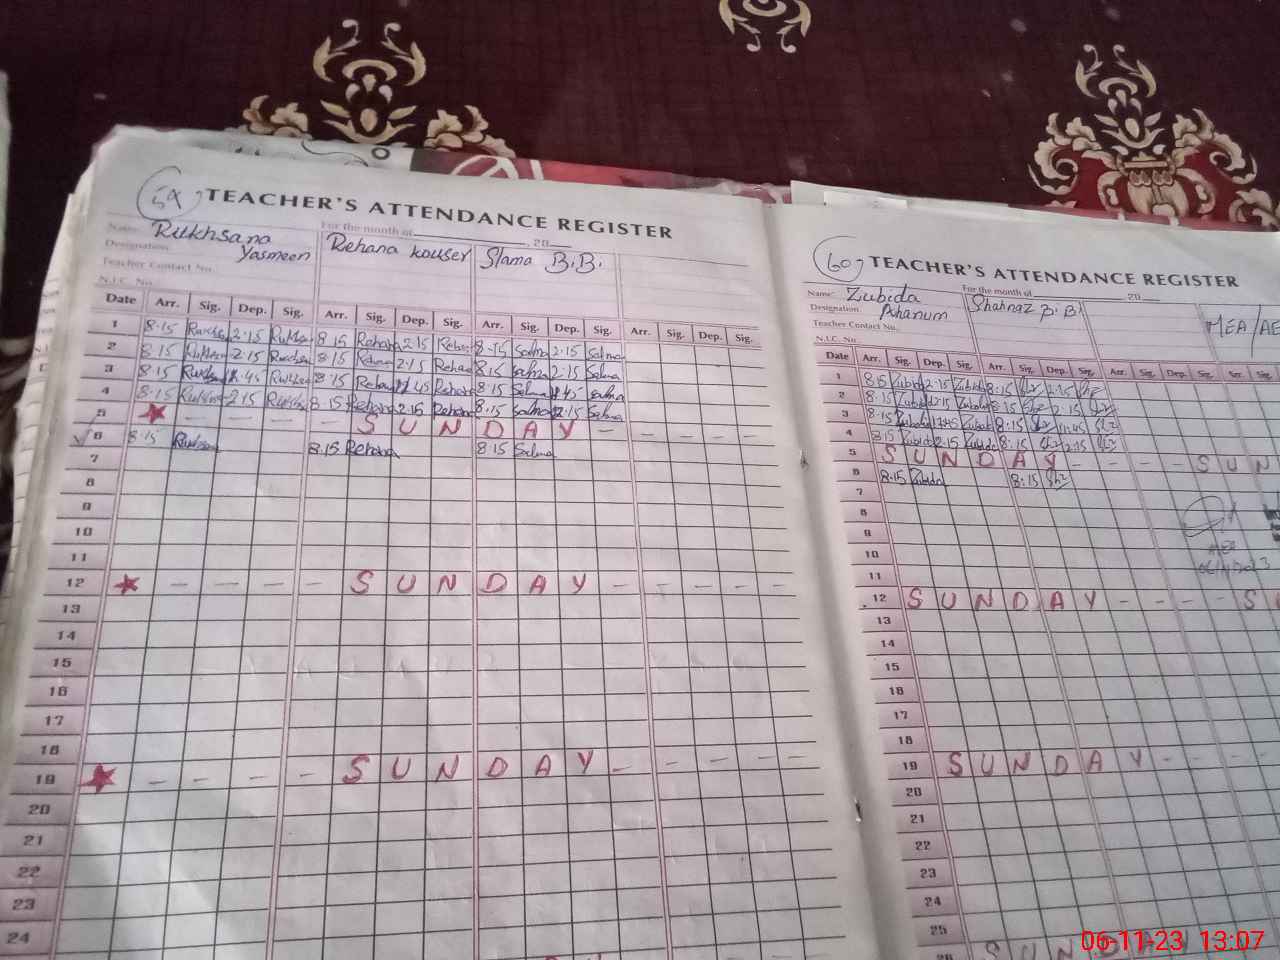 59
TEACHER'S ATTENDANCE REGISTER
Name: Rukhsana Yasmeen
For the month of ____ , 20__
Rehana kouser
Slama B.B.
Designation
Teacher Contact No.
N.I.C. No.
Date Arr. Sig. Dep. Sig. Arr. Sig. Dep. Sig. Arr. Sig. Dep. Sig. Arr. Sig. Dep. Sig.
1 8·15 2·15 8·15 Rehana 2·15 8·15 Salma 2·15 Salma
2 8·15 2·15 8·15 Rehana 2·15 Rehana 8·15 Salma 2·15 Salma
3 8·15 8·15 Rehana 11·45 Rehana 8·15 Salma 11·45 Salma
4 8·15 2·15 8·15 Rehana 2·15 Rehana 8·15 Salma 2·15 Salma
5 SUNDAY
6 8·15 8.15 Rehana 8·15 Salma
7
8
9
10
11
12 SUNDAY
13
14
15
16
17
18
19 SUNDAY
20
21
22
23
24
60
TEACHER'S ATTENDANCE REGISTER
Name: Zubida Khanum
For the month of ____ 20__
Shahnaz B.B.
MEA/
Designation
Teacher Contact No.
N.I.C. No.
Date Arr. Sig. Dep. Sig. Arr. Sig. Dep. Sig. Arr. Sig. Dep. Sig. Arr. Sig
1 8·15 Zubida 2·15 Zubida 8·15 2·15
2 8·15 Zubida 2·15 Zubida 8·15 2·15
3 8·15 Zubida 11·45 Zubida 8·15 11·45
4 8·15 Zubida 2·15 Zubida 8·15 2·15
5 SUNDAY SUN
6 8·15 Zubida 8·15
7
8
9
10
11
12 SUNDAY S
13
14
15
16
17
18
19 SUNDAY
20
21
22
23
24
25
26 SUNDAY
06-11-23 13:07